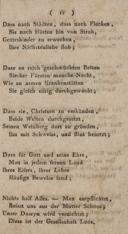 ( 11 )
Dass nach Städten, dass nach Flecken,
Bis nach Hütten hin von Stroh,
Gotteskinder zu erwecken,
Ihre Nächstenliebe floh;
Dass an reich geschmückten Betten
Siecher Fürsten manche Nacht,
Wie an armen Krankenstätten
Sie gleich eifrig durchgewacht;
Dass sie, Christum zu verkünden,
Beide Welten durchgewallt,
Seinen Weinberg dort zu gründen,
Ihn mit Schweiss, und Blut benetzt;
Dass für Gott und seine Ehre,
Man in jedem fernen Land
Ihres Eifers, ihrer Lehre
Häufige Beweise fand;
Nichts half Alles. — Man entpflichtet,
Reisst uns aus der Mutter Schoos;
Unser Daseyn wird vernichtet;
Diess ist der Gesellschaft Loos.